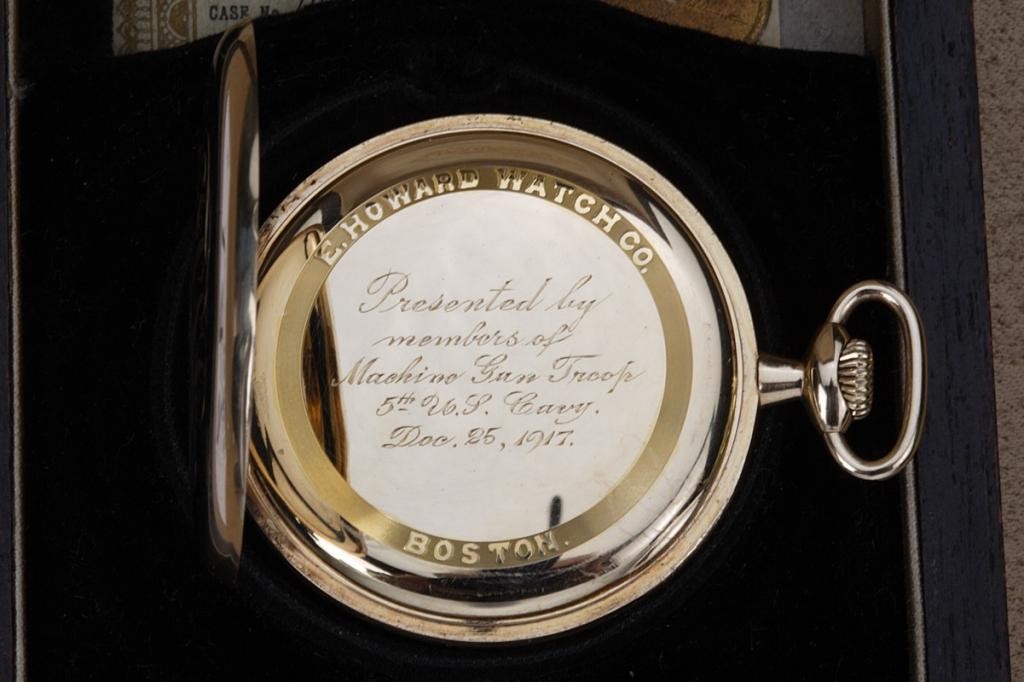 CASE No.
E. HOWARD WATCH CO.
Presented by
members of
Machine Gun Troop
5th U.S. Cavy.
Dec. 25, 1917.
BOSTON.